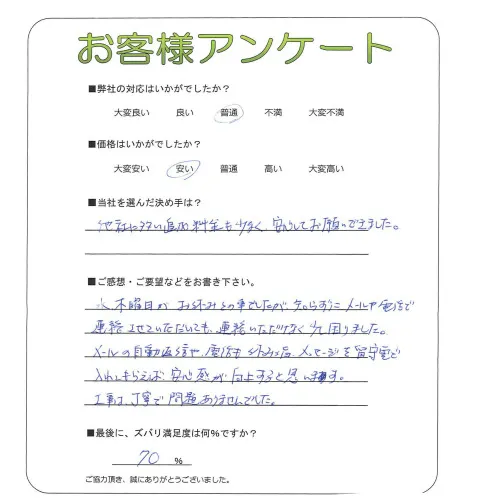 お客様アンケート
■弊社の対応はいかがでしたか？
大変良い　良い　普通　不満　大変不満
■価格はいかがでしたか？
大変安い　安い　普通　高い　大変高い
■当社を選んだ決め手は？
他社に多い追加料金も少なく、安心してお願いできました。
■ご感想・ご要望などをお書き下さい。
水、木曜日が お休みの事でしたが、知らずに メールや電話で
連絡 させていただいても、連絡いただけなく 少し困りました。
メールの自動返信や、電話も お休み メッセージを 留守電で
入れてもらえば、安心感が 向上すると思います。
工事は、丁寧で 問題ありませんでした。
■最後に、ズバリ満足度は何%ですか？
70 %
ご協力頂き、誠にありがとうございました。